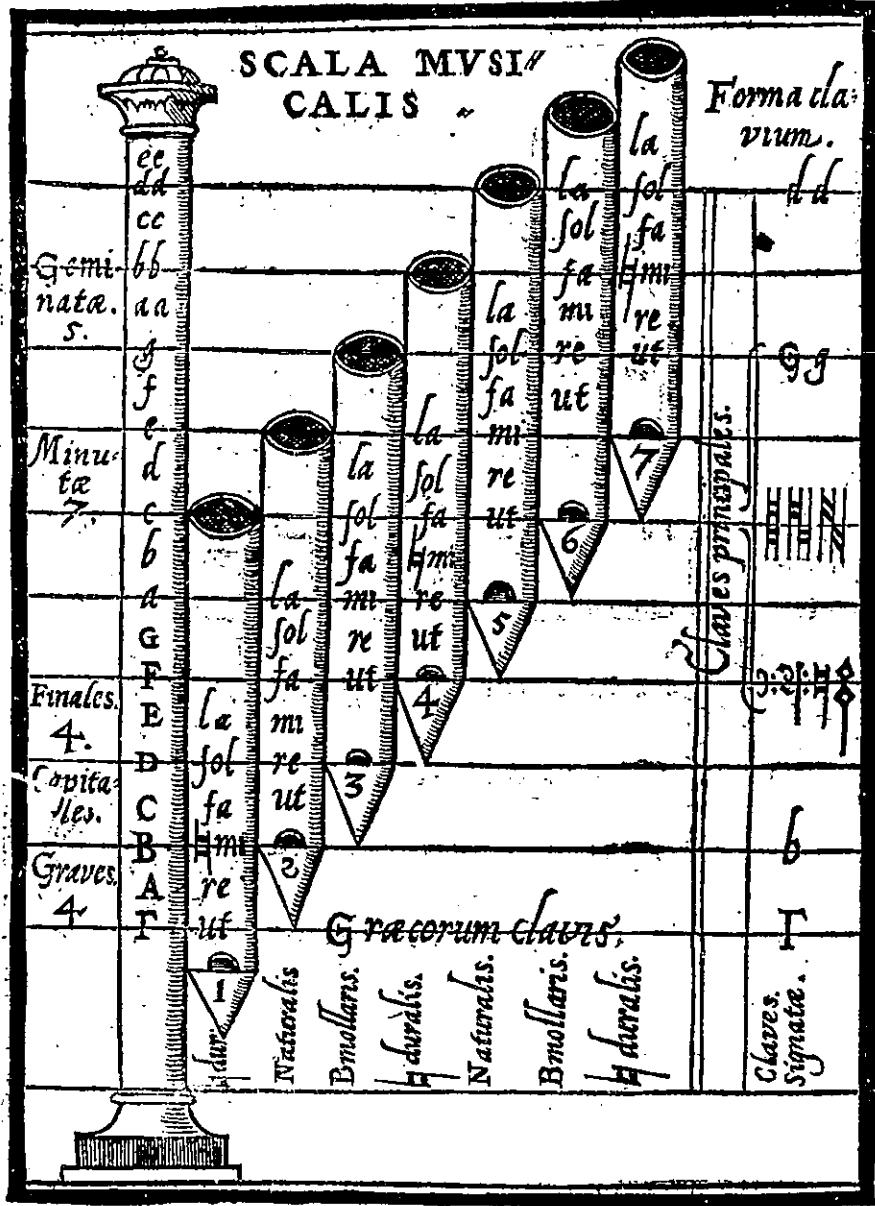 SCALA MVSI〃
CALIS
Forma cla:
vium.
Gemi
natæ.
5.
Minu-
tæ
7.
Finales.
4.
Capita-
les.
Graves.
4
ee
dd
cc
bb
aa
g
f
e
d
c
b
a
G
F
E
D
C
B
A
Γ
la
sol
fa
♮mi
re
ut
1
la
sol
fa
mi
re
ut
2
la
sol
fa
mi
re
ut
3
la
sol
fa
♮mi
re
ut
4
la
sol
fa
mi
re
ut
5
la
sol
fa
mi
re
ut
6
la
sol
fa
♮mi
re
ut
7
Græcorum clavis.
♮dur
Naturalis
Bmollaris.
♮duralis.
Naturalis.
Bmollaris.
♮duralis.
Claves principales.
dd
Gg
b
Γ
Claves.
Signatæ.